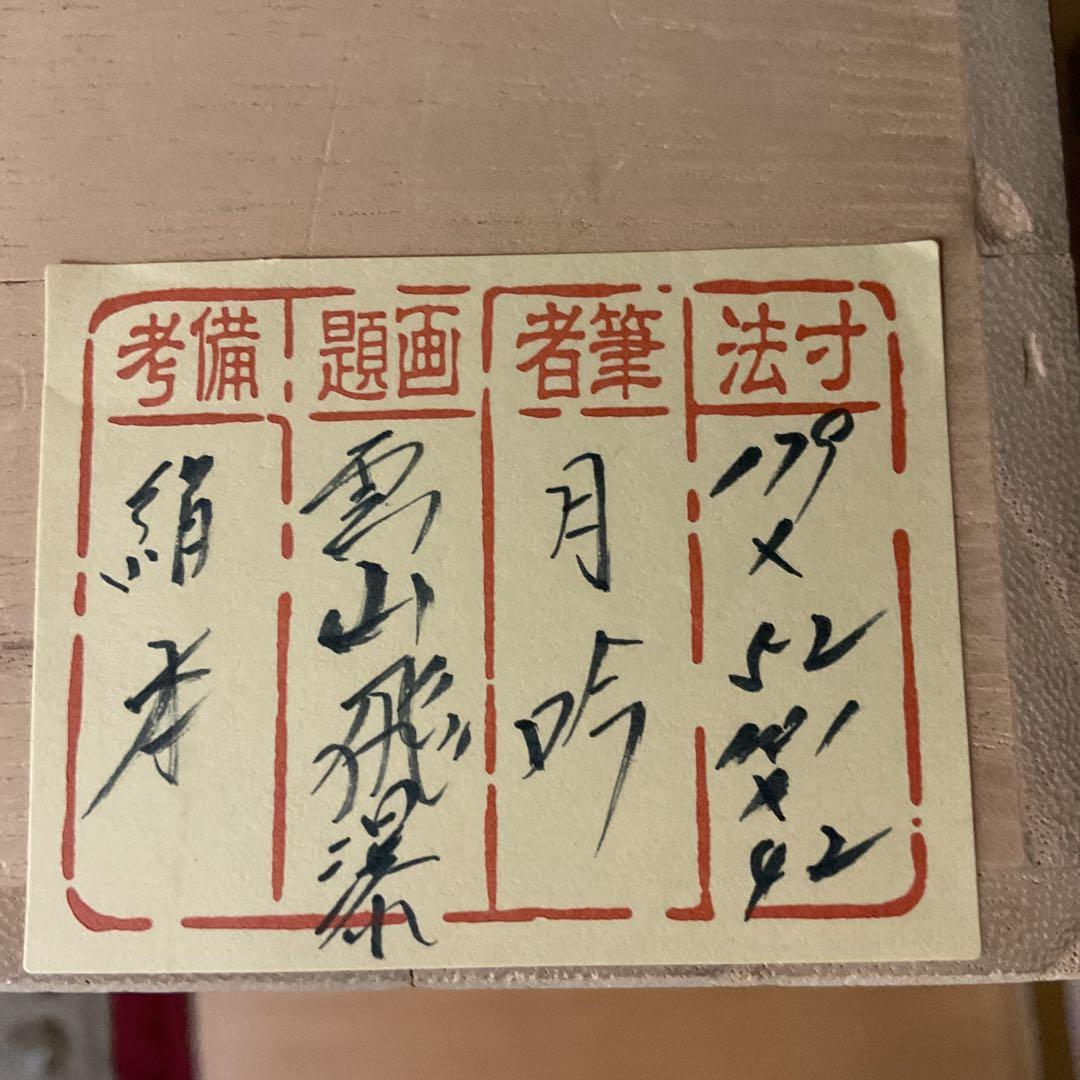 寸法
179
×
52
×
42
筆者
月吟
画題
雲山飛瀑
備考
絹本